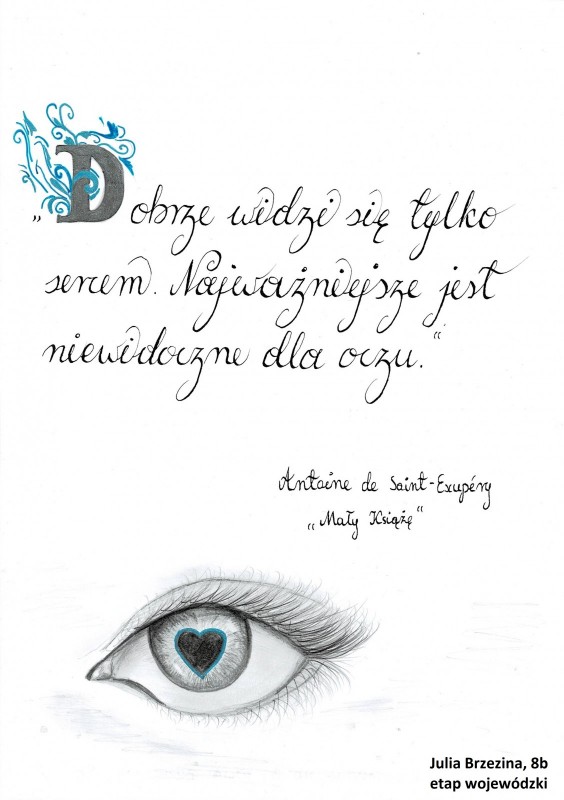 „Dobrze widzi się tylko
sercem. Najważniejsze jest
niewidoczne dla oczu."
Antoine de Saint-Exupéry
„Mały Książę"
Julia Brzezina, 8b
etap wojewódzki